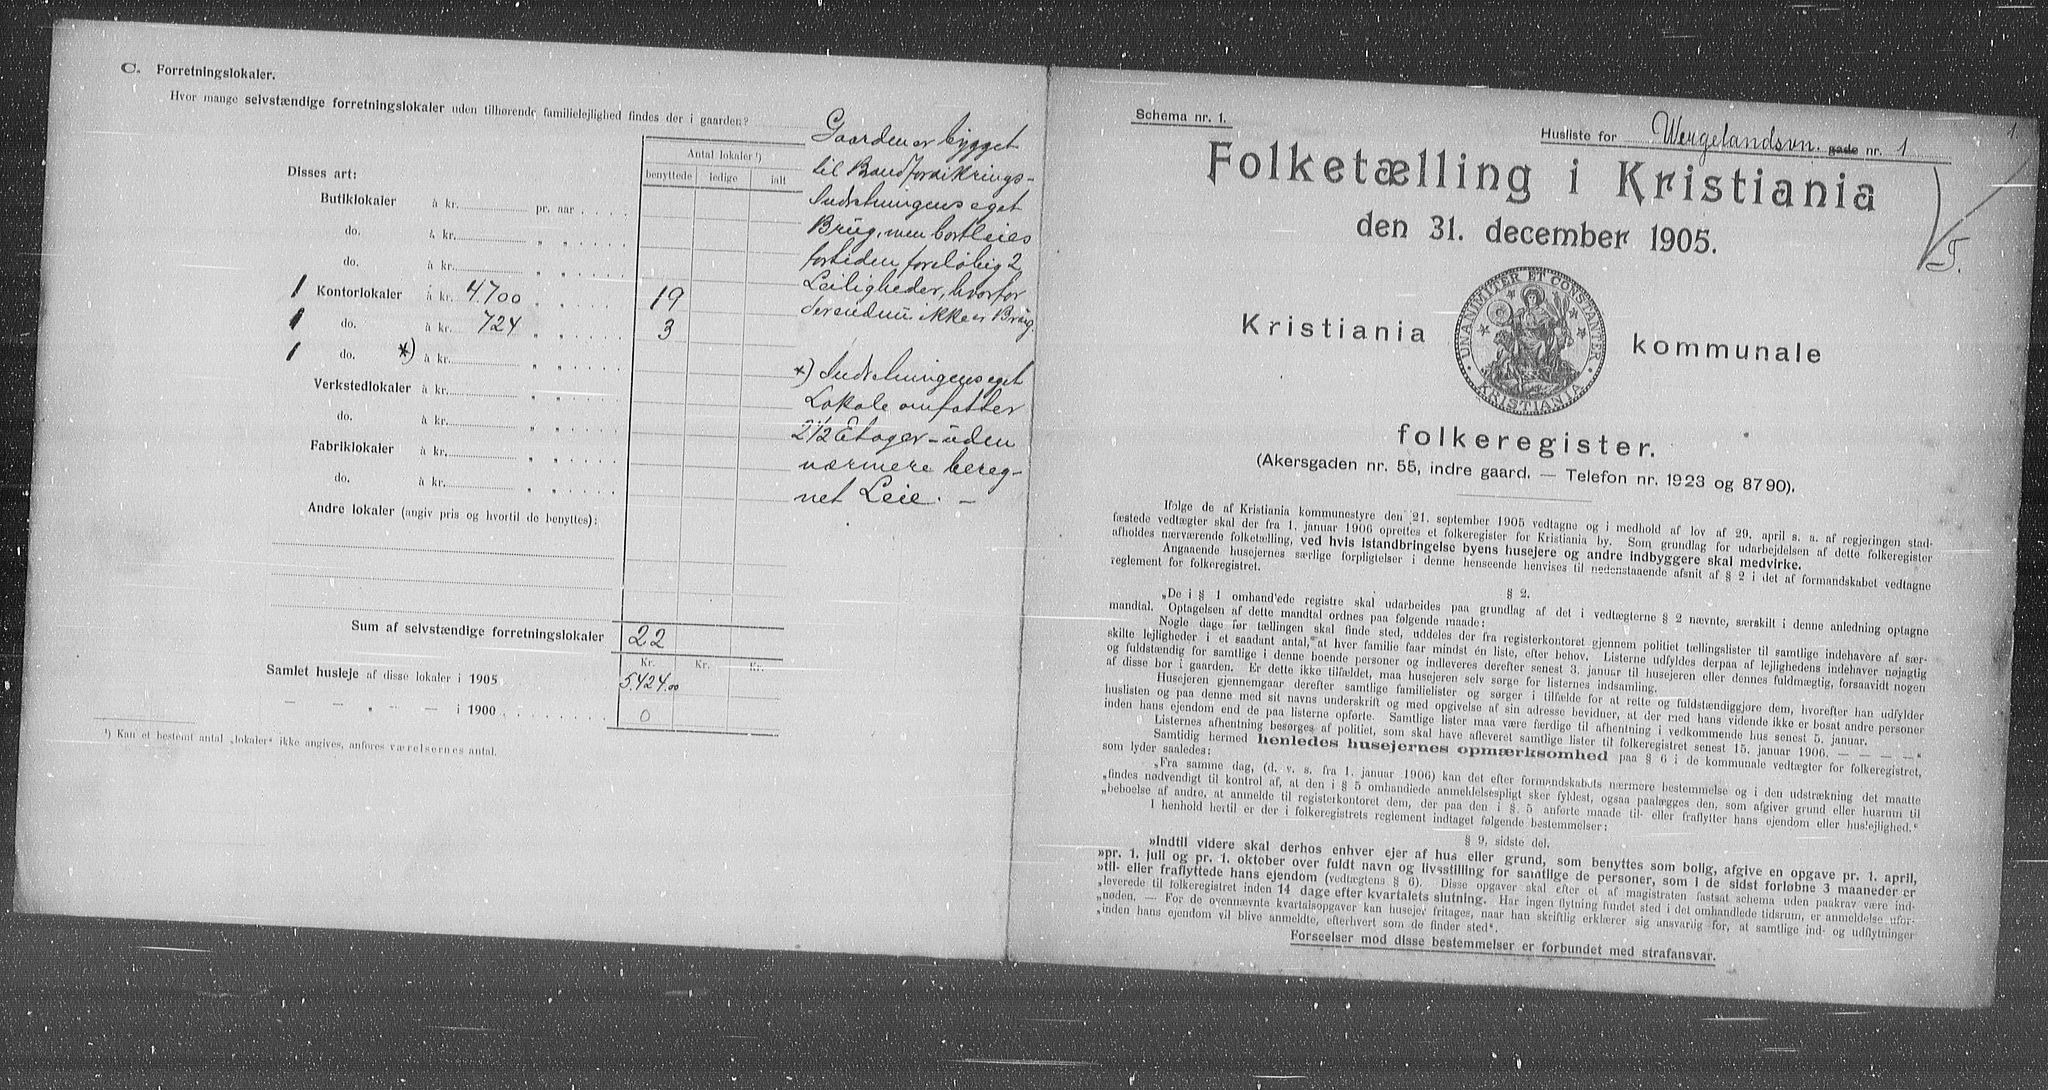 C. Forretningslokaler.
Hvor mange selvstændige forretningslokaler uden tilhørende familielejlighed findes der i gaarden?
Antal lokaler ¹)
Disses art:
benyttede ledige ialt
Butiklokaler à kr. pr. aar
do. à kr. „ „
do. à kr. „ „
1 Kontorlokaler à kr. 4.700 „ „ 19
1 do. à kr. 724 „ „ 3
1 do. *) à kr. „ „
Verkstedlokaler à kr. „ „
do. à kr. „ „
Fabriklokaler à kr. „ „
do. à kr. „ „
Andre lokaler (angiv pris og hvortil de benyttes):
Sum af selvstændige forretningslokaler 22
Kr. Kr. Kr.
Samlet husleje af disse lokaler i 1905 5.424.00
— — „ — i 1900 0
¹) Kan et bestemt antal „lokaler“ ikke angives, anføres værelsernes antal.
Gaarden er bygget
til Brandforsikrings-
Indretningens eget
Brug, men bortleies
fortiden foreløbig 2
Leiligheder, hvorfor
der endnu ikke er Brug.
*) Indretningens eget
Lokale omfatter
2 1/2 Etager - uden
nærmere bereg-
net Leie. —
1.
Schema nr. 1.
Husliste for Wergelandsvn. gade nr. 1
Folketælling i Kristiania
den 31. december 1905.
T.
UNANIMITER ET CONSTANTER
KRISTIANIA
Kristiania kommunale
folkeregister.
(Akersgaden nr. 55, indre gaard. — Telefon nr. 1923 og 8790).
Ifølge de af Kristiania kommunestyre den 21. september 1905 vedtagne og i medhold af lov af 29. april s. a. af regjeringen stad-
fæstede vedtægter skal der fra 1. januar 1906 oprettes et folkeregister for Kristiania by. Som grundlag for udarbejdelsen af dette folkeregister
afholdes nærværende folketælling, ved hvis istandbringelse byens husejere og andre indbyggere skal medvirke.
Angaaende husejernes særlige forpligtelser i denne henseende henvises til nedenstaaende afsnit af § 2 i det af formandskabet vedtagne
reglement for folkeregistret.
§ 2.
„De i § 1 omhand'ede registre skal udarbeides paa grundlag af det i vedtægterne § 2 nævnte, særskilt i denne anledning optagne
mandtal. Optagelsen af dette mandtal ordnes paa følgende maade:
Nogle dage før tællingen skal finde sted, uddeles der fra registerkontoret gjennem politiet tællingslister til samtlige indehavere af sær-
skilte lejligheder i et saadant antal, at hver familie faar mindst én liste, efter behov. Listerne udfyldes derpaa af lejlighedens indehaver nøjagtig
og fuldstændig for samtlige i denne boende personer og indleveres derefter senest 3. januar til husejeren eller dennes fuldmægtig, forsaavidt nogen
af disse bor i gaarden. Er dette ikke tilfældet, maa husejeren selv sørge for listernes indsamling.
Husejeren gjennemgaar derefter samtlige familielister og sørger i tilfælde for at rette og fuldstændiggjøre dem, hvorefter han udfylder
huslisten og paa denne med sit navns underskrift og med opgivelse af sin adresse bevidner, at der med hans vidende ikke er bosat andre personer
inden hans ejendom end de paa listerne opførte. Samtlige lister maa være færdige til afhentning i vedkommende hus senest 5. januar.
Listernes afhentning besørges af politiet, som skal have afleveret samtlige lister til folkeregistret senest 15. januar 1906. — — — —“
Samtidig hermed henledes husejernes opmærksomhed paa § 6 i de kommunale vedtægter for folkeregistret,
som lyder saaledes:
„Fra samme dag, (d. v. s. fra 1. januar 1906) kan det efter formandskabets nærmere bestemmelse og i den udstrækning det maatte
„findes nødvendigt til kontrol af, at den i § 5 omhandlede anmeldelsespligt sker fyldest, ogsaa paalægges den, som afgiver grund eller husrum til
„beboelse af andre, at anmelde til registerkontoret dem, der paa den i § 5 anførte maade til- eller fraflytter hans ejendom eller huslejlighed.“
I henhold hertil er der i folkeregistrets reglement indtaget følgende bestemmelser:
§ 9, sidste del.
»Indtil videre skal derhos enhver ejer af hus eller grund, som benyttes som bolig, afgive en opgave pr. 1. april,
»pr. 1. juli og pr. 1. oktober over fuldt navn og livsstilling for samtlige de personer, som i de sidst forløbne 3 maaneder er
»til- eller fraflyttede hans ejendom (vedtægtens § 6). Disse opgaver skal efter et af magistraten fastsat schema uden paakrav være ind-
„leverede til folkeregistret inden 14 dage efter kvartalets slutning. Har ingen flytning fundet sted i det omhandlede tidsrum, er anmeldelse ufor-
„nøden. — For de ovennævnte kvartalsopgaver kan husejer fritages, naar han skriftlig erklærer sig ansvarlig for, at samtlige ind- og udflytninger
„inden hans ejendom vil blive anmeldte, efterhvert som de finder sted“.
Forseelser mod disse bestemmelser er forbundet med strafansvar.